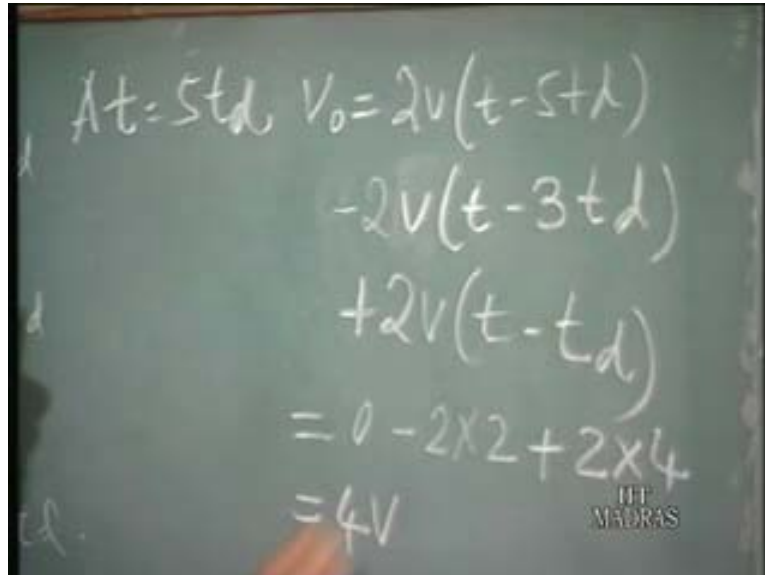 At=5td V₀=2v(t-5td)
-2v(t-3td)
+2v(t-td)
=0-2×2+2×4
=4V
IIT
MADRAS